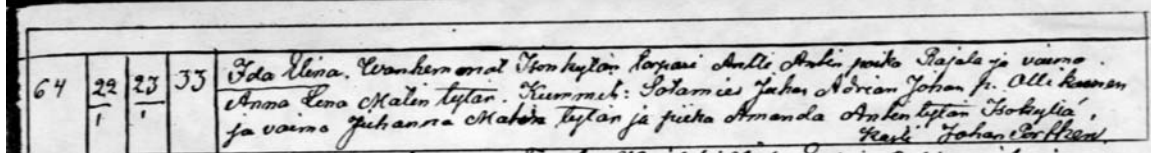 64 22/1 23/1 33 Ida Elina. Wanhemmat Isonkylän torpari Antti Antin poika Rajala ja vaimo
Anna Lena Matin tytär. Kummit: Sotamies Juhan Adrian Johan p. Ollikainen
ja vaimo Juhanna Matin tytär ja piika Amanda Antin tytär Isokyliä,
Kasti Johan Porthen.